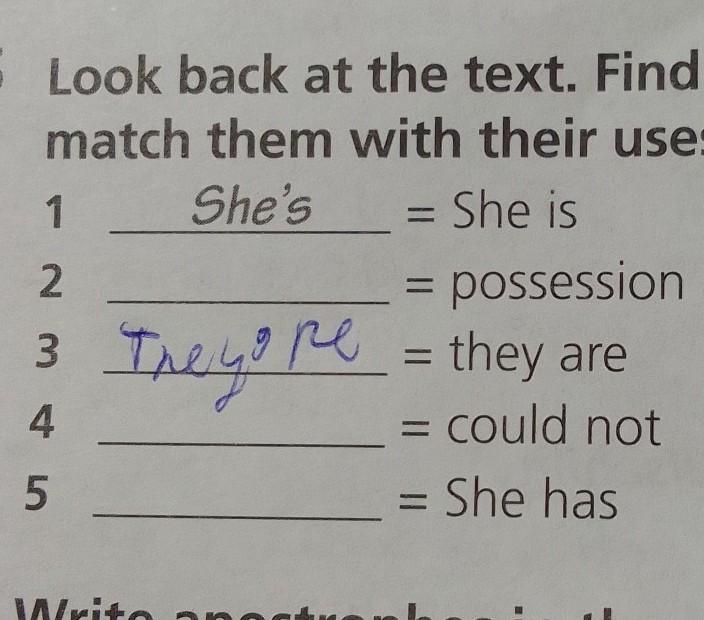 Look back at the text. Find
match them with their uses
1 She's = She is
2 = possession
3 They're = they are
4 = could not
5 = She has
Write apostrophes in th